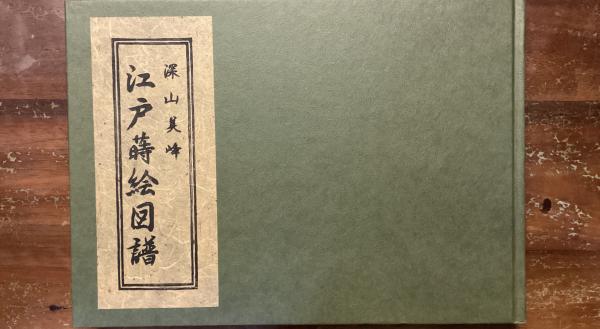 深山美峰
江戸蒔絵図譜